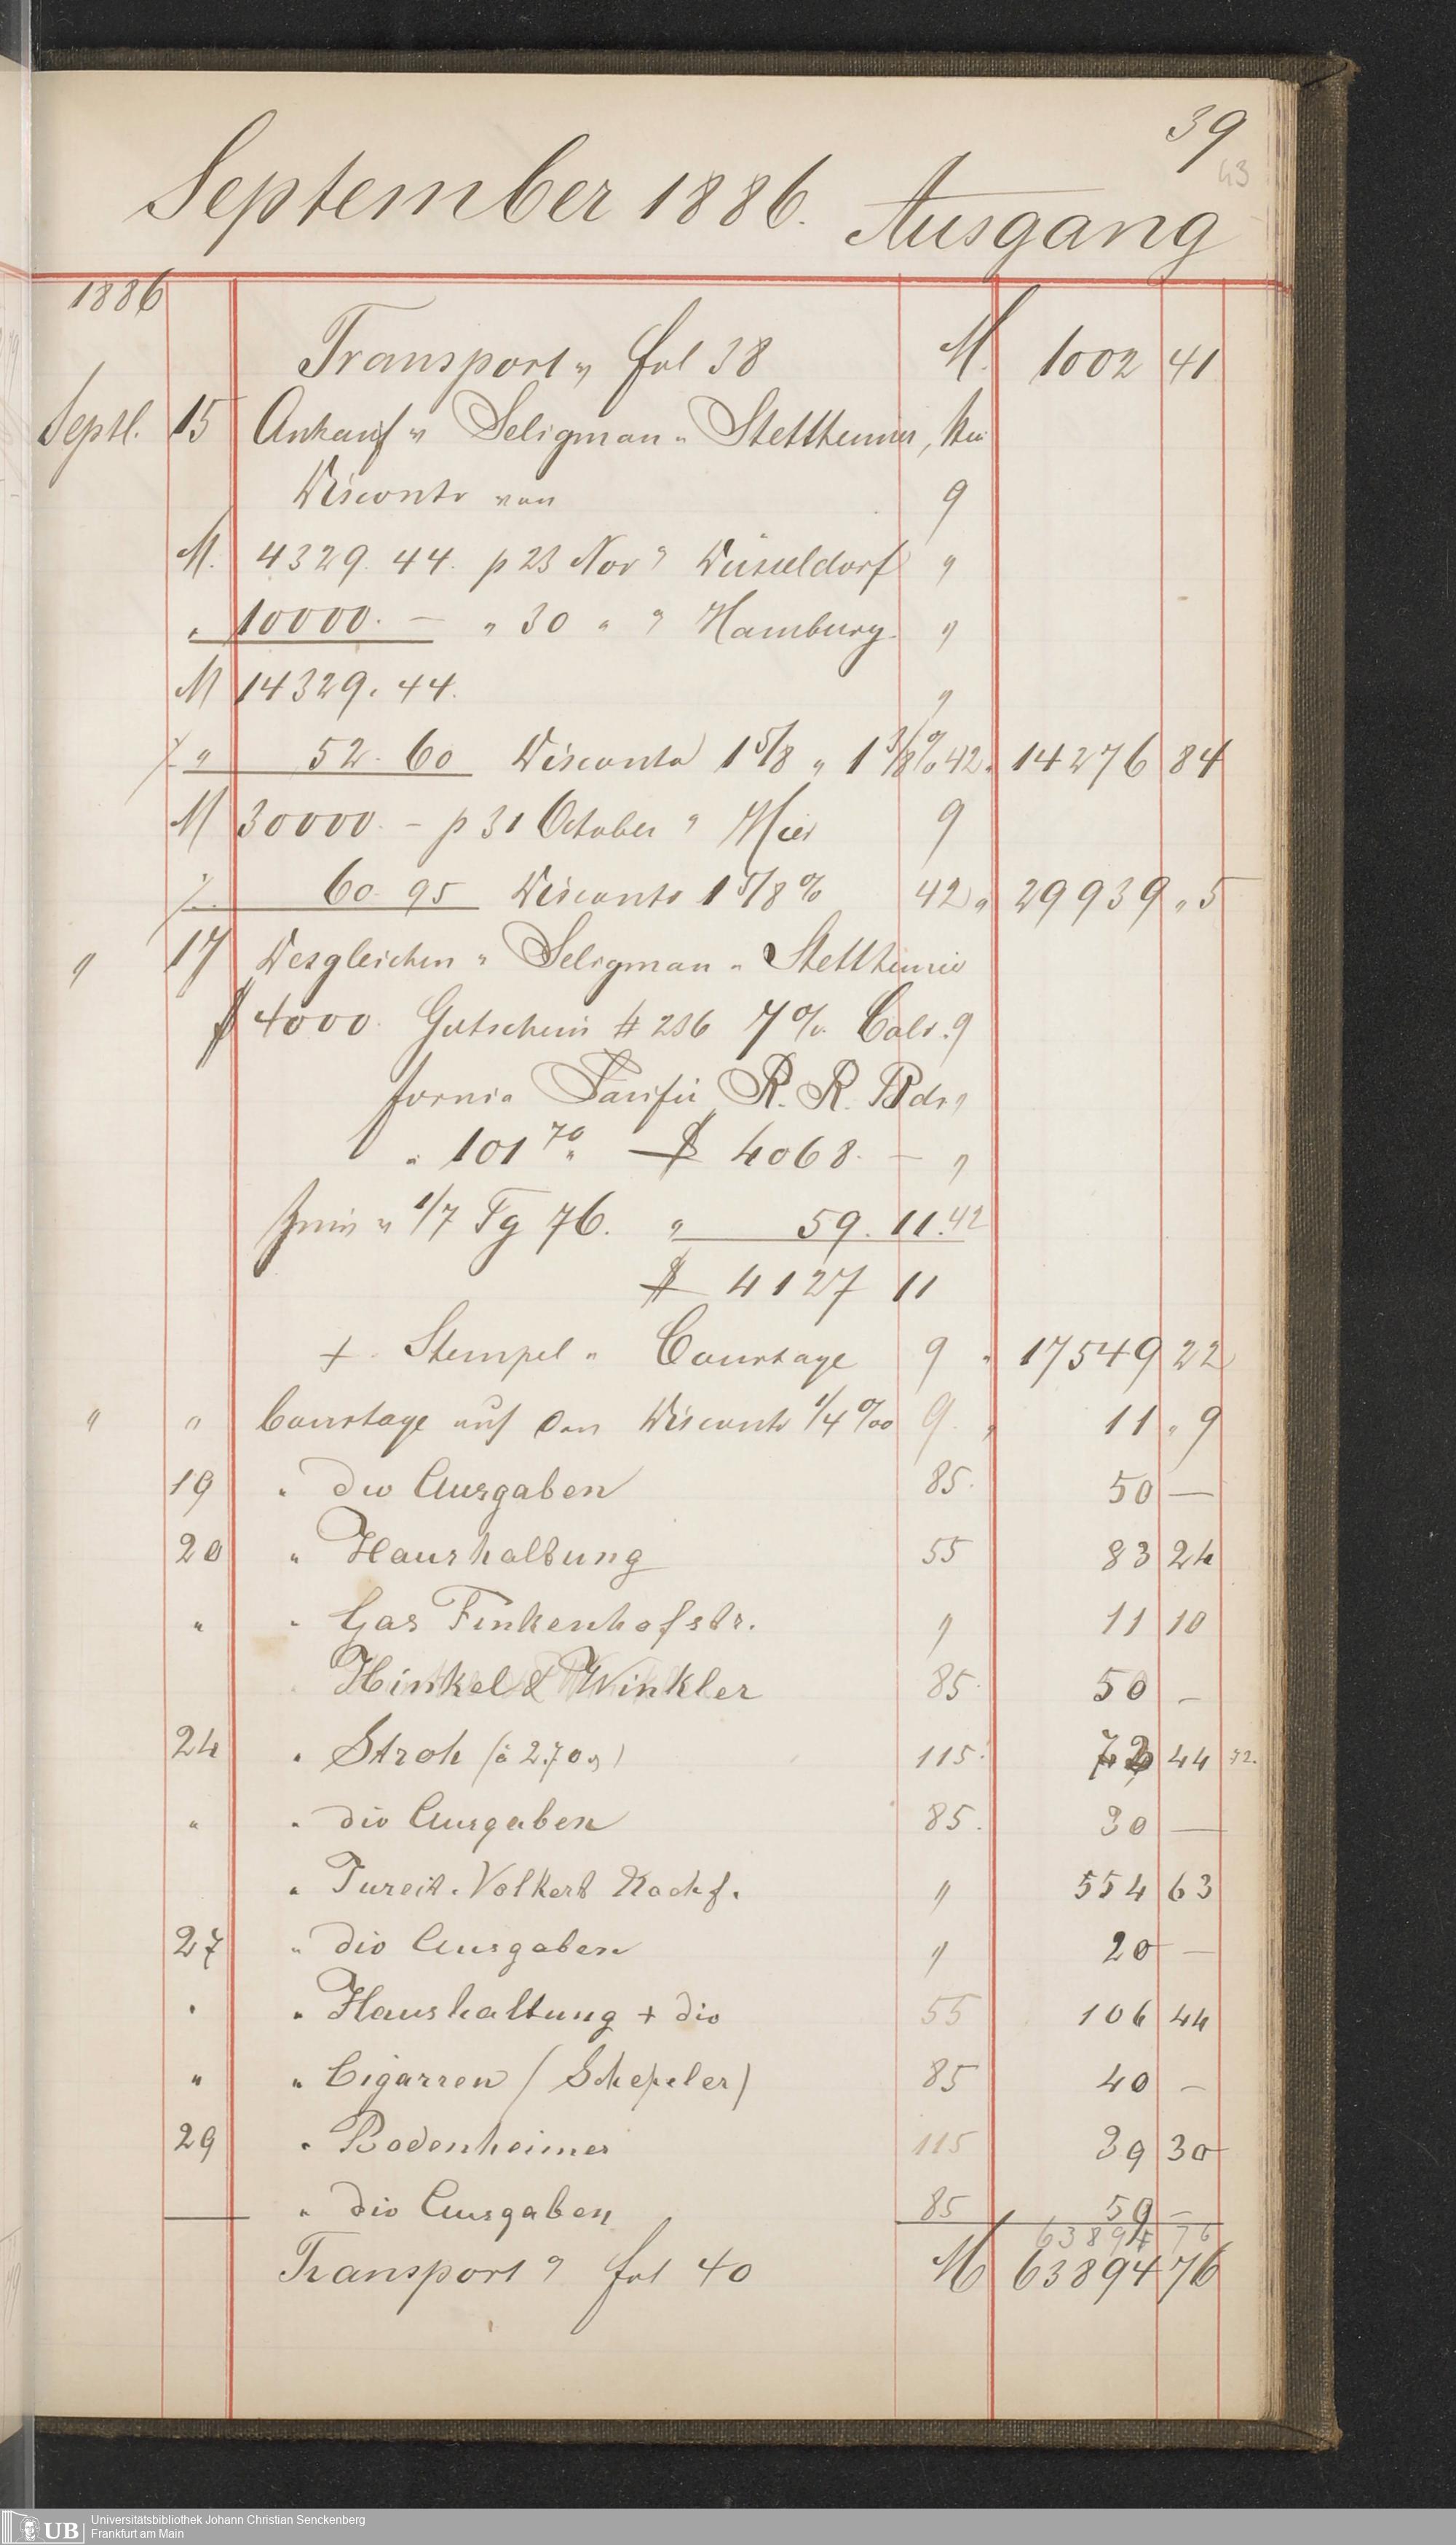 39
43
September 1886. Ausgang
1886
Transport v. fol 38 M. 1002 41
Septb. 15 Ankauf v. Seligman & Stettheimer, hier
Disconto von 9
M. 4329. 44. p 23 Nov a/ Düsseldorf "
" 10000. — " 30 " a/ Hamburg "
M 14329. 44. "
·/. " 52. 60 Disconto 1 5/8 & 1 3/8 % 42 " 14276 84
M 30000. — p 31 October a/ Hier 9
·/. 60. 95 Disconto 1 5/8 % 42 " 29939 " 5
" 17 Desgleichen v. Seligman & Stettheimer
$ 4000. Gutschein # 236 7% Cali= 9
fornia Pacific R. R. Bds "
a 101 70 " $ 4068. — "
Zins v. 1/7 Tg 76. " 59. 11. 42
$ 4127 11
+ Stempel & Courtage 9 " 17549 22
" " Courtage auf den Disconto 1/4 ‰ 9. " 11 " 9
19 " div Ausgaben 85. 50 —
20 " Haushaltung 55 83 24
" " Gas Finkenhofstr. " 11 10
Hinkel & Winkler 85. 50 —
24 " Stroh (à 2.70 ) 115. 72 44 72.
" " div Ausgaben 85. 30 —
" Volkert Nachf. " 554 63
27 " div Ausgaben " 20 —
" " Haushaltung + div 55 106 44
" " Cigarren (Schepeler) 85 40 —
29 " Bodenheimer 115 39 30
" div Ausgaben 85 59 —
63894 76
Transport a/ fol 40 M 63894 76
UB Universitätsbibliothek Johann Christian Senckenberg
Frankfurt am Main